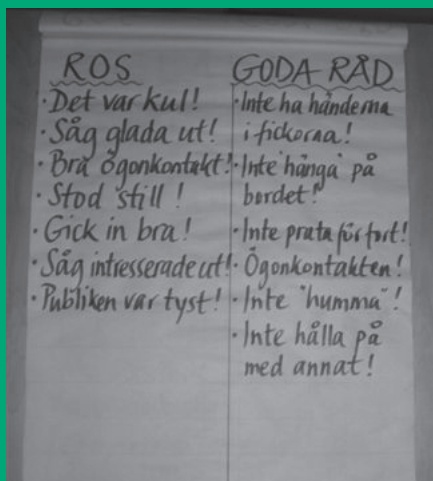 ROS
· Det var kul!
· Såg glada ut!
· Bra ögonkontakt!
· Stod still!
· Gick in bra!
· Såg intresserade ut!
· Publiken var tyst!
GODA RÅD
· Inte ha händerna
i fickorna!
· Inte "hänga" på
bordet!
· Inte prata för fort!
· Ögonkontakten!
· Inte "humma"!
· Inte hålla på
med annat!